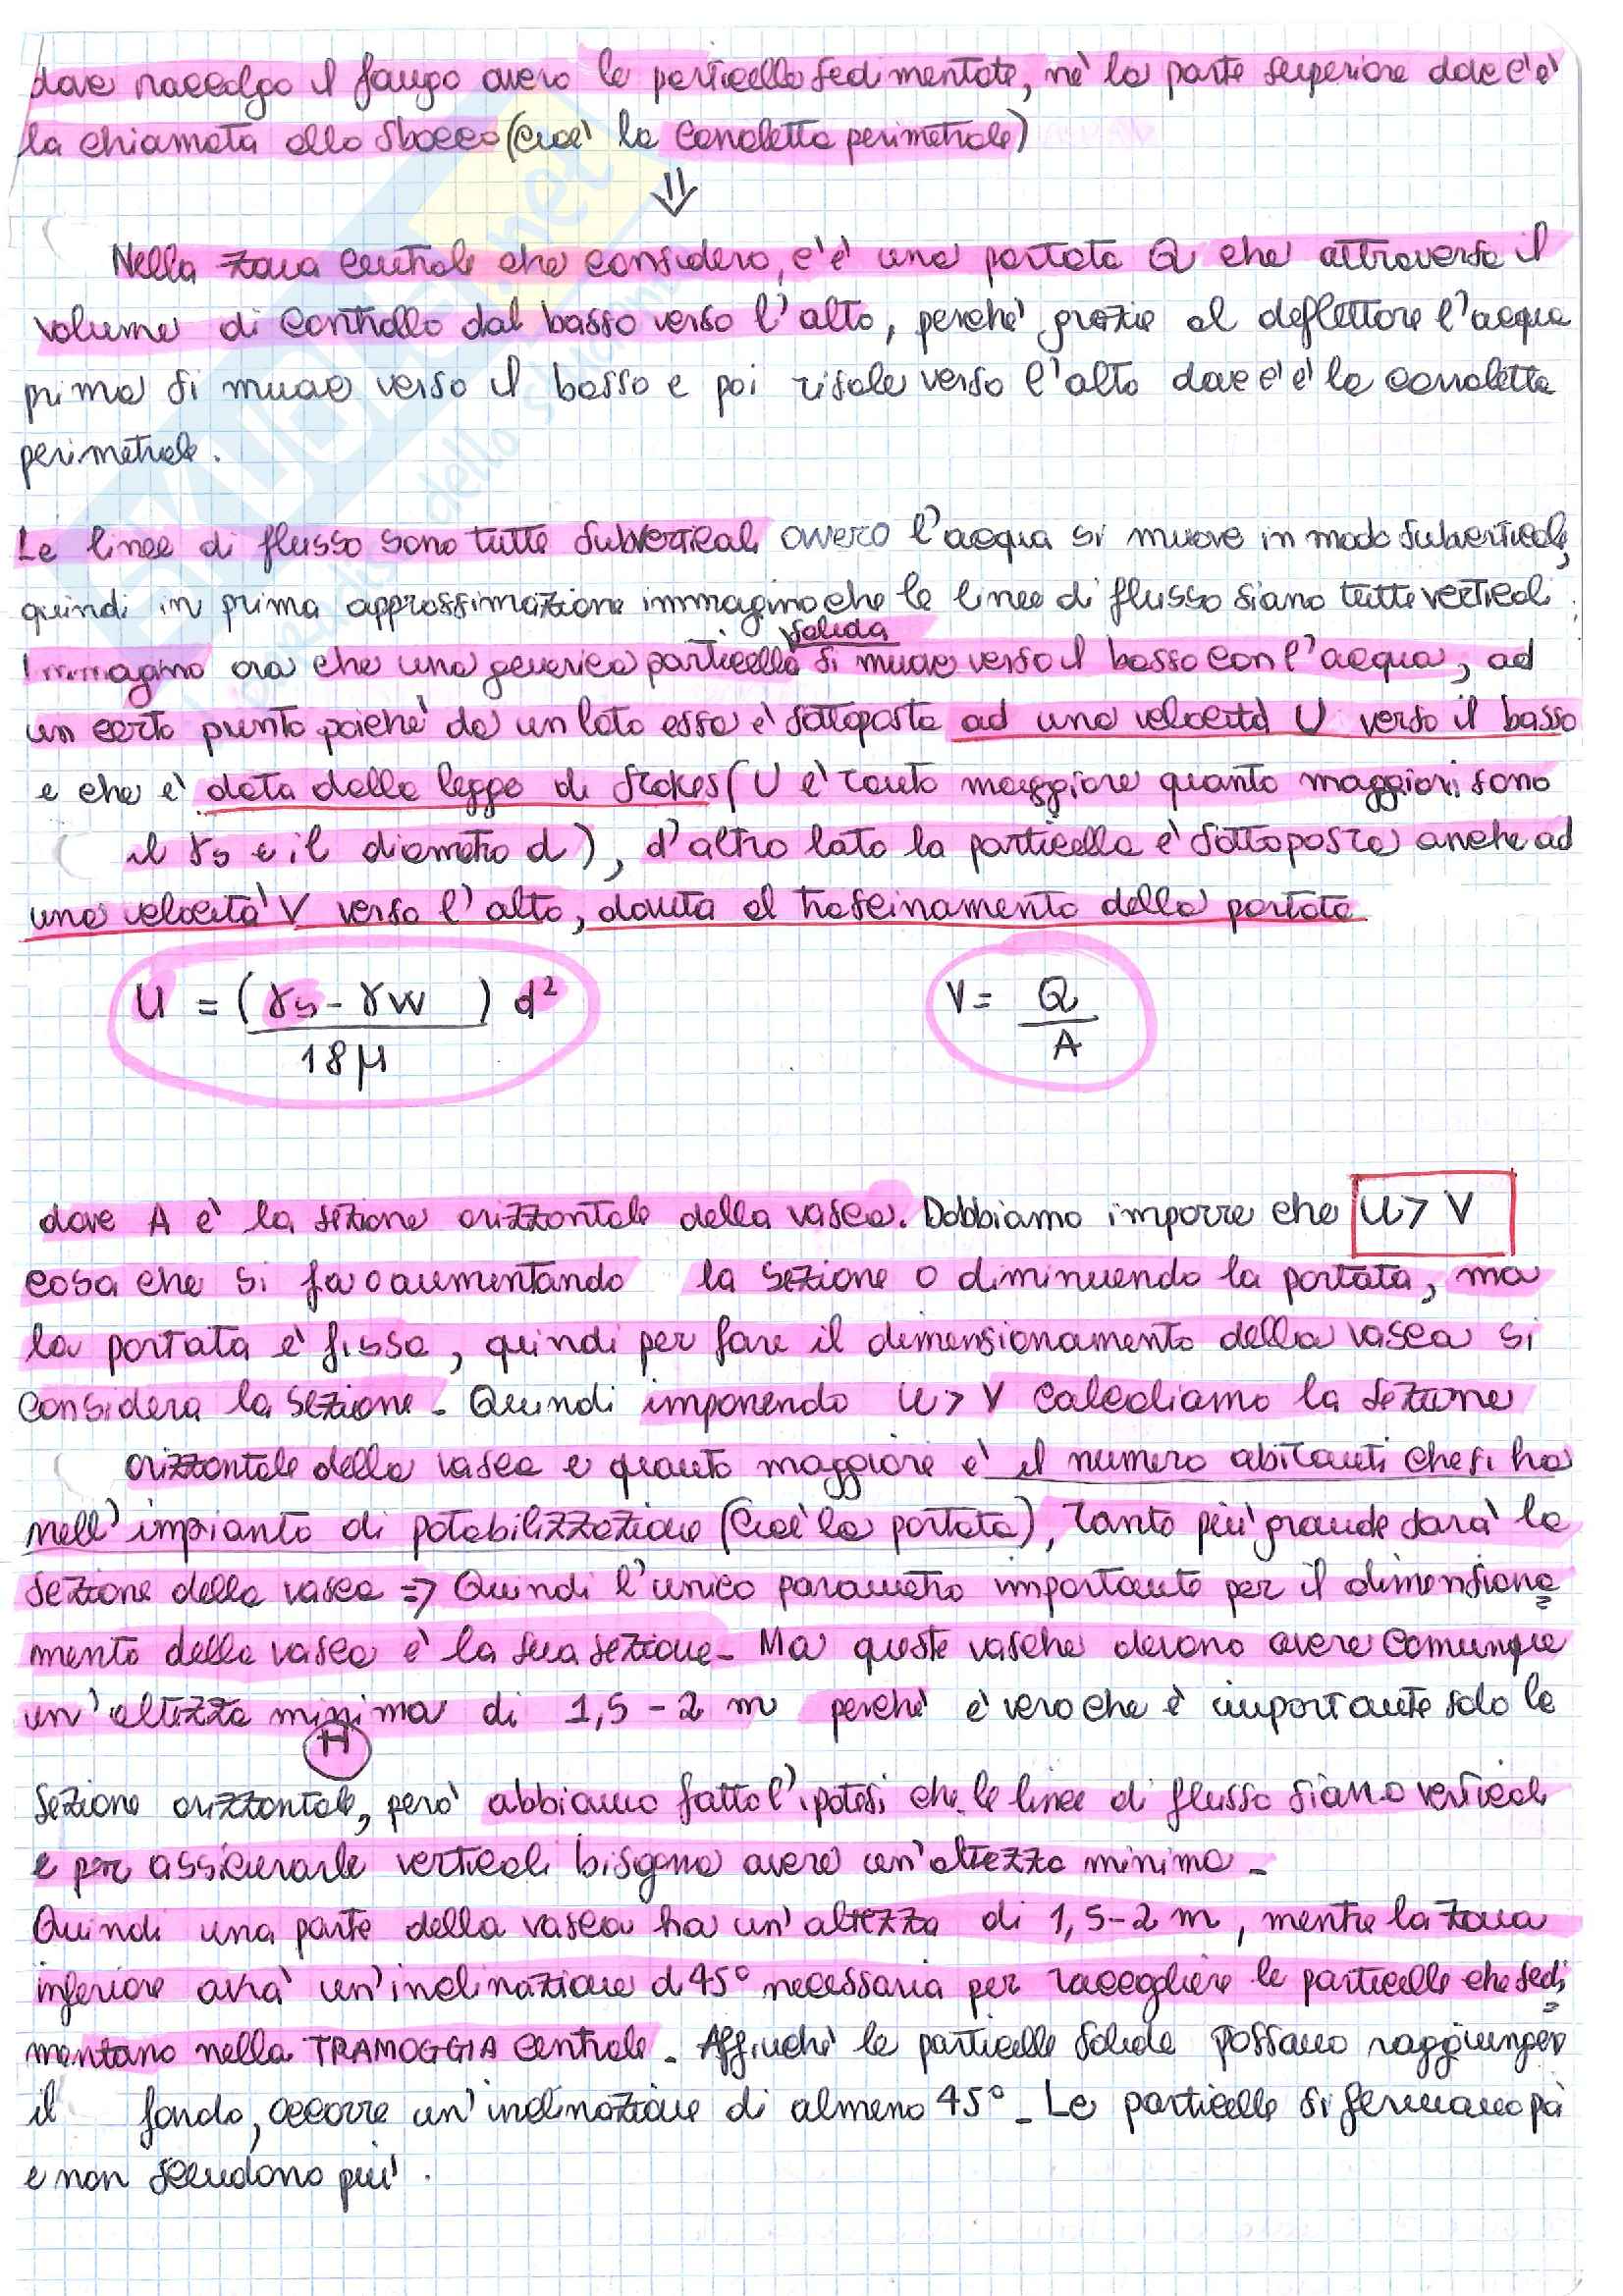 dove raccolgo il fango ovvero le particelle sedimentate, nè la parte superiore dove c'è
la chiamata allo sbocco (cioè la canaletta perimetrale)
⇓
Nella zona centrale che considero, c'è una portata Q che attraversa il
volume di controllo dal basso verso l'alto, perchè grazie al deflettore l'acqua
prima si muove verso il basso e poi risale verso l'alto dove c'è la canaletta
perimetrale.
Le linee di flusso sono tutte subverticali ovvero l'acqua si muove in modo subverticale,
quindi in prima approssimazione immagino che le linee di flusso siano tutte verticali.
solida
Immagino ora che una generica particella si muove verso il basso con l'acqua, ad
un certo punto poichè da un lato essa è sottoposta ad una velocità U verso il basso
e che è data dalla legge di Stokes (U è tanto maggiore quanto maggiori sono
il γs e il diametro d), d'altro lato la particella è sottoposta anche ad
una velocità V verso l'alto, dovuta al trascinamento della portata
U = (γs - γw) d² / 18μ V = Q / A
dove A è la sezione orizzontale della vasca. Dobbiamo imporre che U > V
cosa che si fa o aumentando la sezione o diminuendo la portata, ma
la portata è fissa, quindi per fare il dimensionamento della vasca si
considera la sezione. Quindi imponendo U > V calcoliamo la sezione
orizzontale della vasca e quanto maggiore è il numero abitanti che si ha
nell'impianto di potabilizzazione (cioè la portata), tanto più grande sarà la
sezione della vasca => Quindi l'unico parametro importante per il dimensiona
mento della vasca è la sua sezione. Ma queste vasche devono avere comunque
un'altezza minima di 1,5 - 2 m perchè è vero che è importante solo la
H
sezione orizzontale, però abbiamo fatto l'ipotesi che le linee di flusso siano verticali
e per assicurarle verticali bisogna avere un'altezza minima.
Quindi una parte della vasca ha un'altezza di 1,5-2 m, mentre la zona
inferiore avrà un'inclinazione di 45° necessaria per raccogliere le particelle che sedi
mentano nella TRAMOGGIA centrale. Affinchè le particelle solide possano raggiungere
il fondo, occorre un'inclinazione di almeno 45°. Le particelle si fermano
e non scendono più.